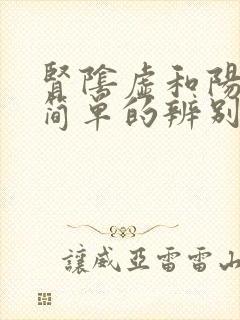 賢陰虛和陽
简單的辨别
讓威亞雷雷山